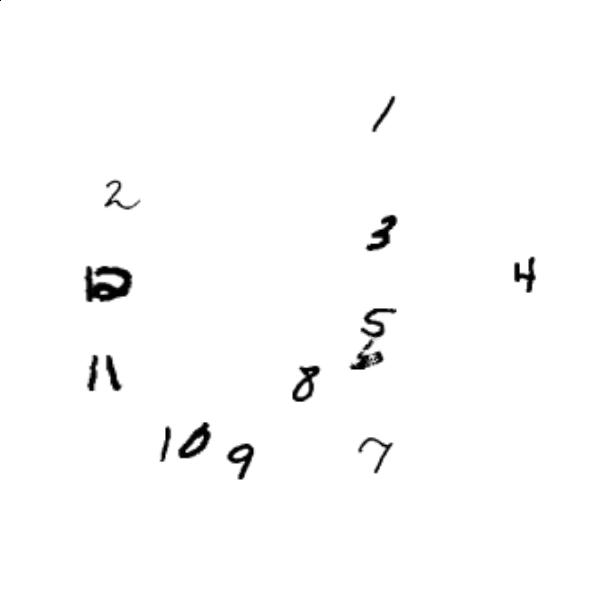 1
2
3
4
12
5
6
11
8
10 9
7